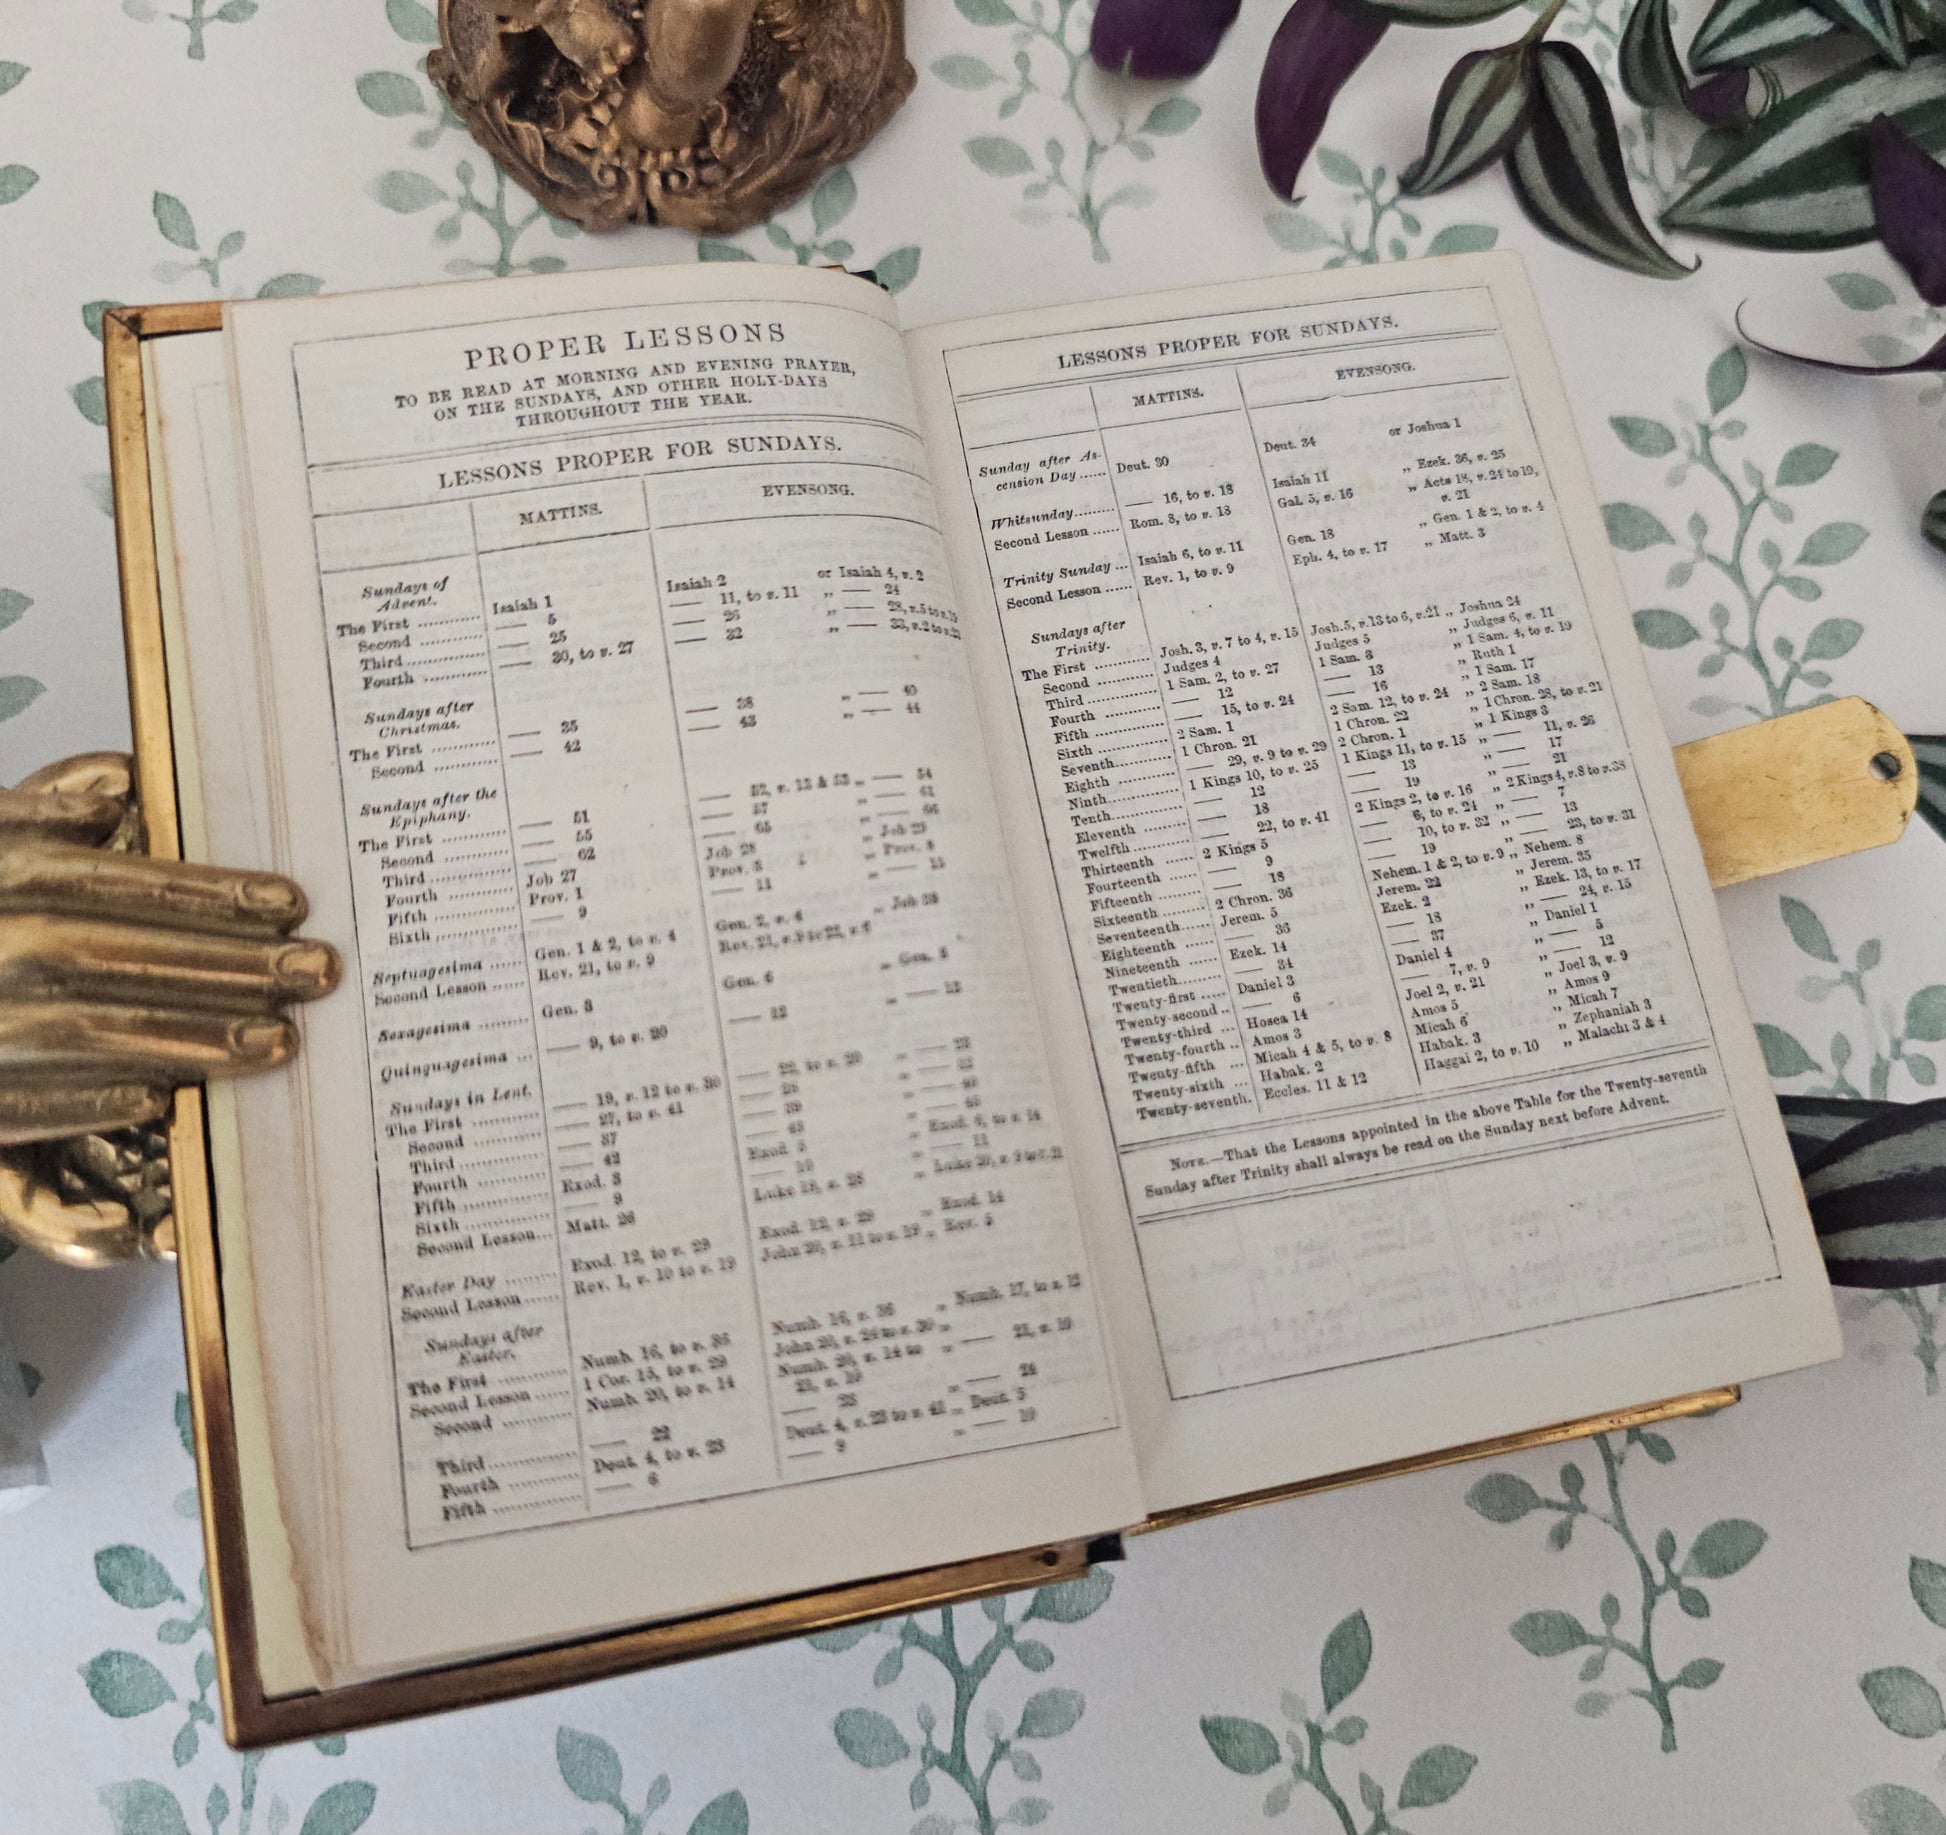 PROPER LESSONS
TO BE READ AT MORNING AND EVENING PRAYER,
ON THE SUNDAYS, AND OTHER HOLY-DAYS
THROUGHOUT THE YEAR.
LESSONS PROPER FOR SUNDAYS.
MATTINS. EVENSONG.
Sundays of
Advent.
The First ............ Isaiah 1 Isaiah 2 or Isaiah 4, v. 2
Second ............ —— 5 —— 11, to v. 11 „ —— 24
Third ............ —— 25 —— 26 „ —— 28, v. 5 to v. 19
Fourth ............ —— 30, to v. 27 —— 32 „ —— 33, v. 2 to v. 23
Sundays after
Christmas.
The First ............ —— 35 —— 38 „ —— 40
Second ............ —— 42 —— 43 „ —— 44
Sundays after the
Epiphany.
The First ............ —— 51 —— 52, v. 13 & 53 „ —— 54
Second ............ —— 55 —— 57 „ —— 61
Third ............ —— 62 —— 65 „ —— 66
Fourth ............ Job 27 Job 28 „ Job 29
Fifth ............ Prov. 1 Prov. 3 „ Prov. 8
Sixth ............ —— 9 —— 11 „ —— 15
Septuagesima ...... Gen. 1 & 2, to v. 4 Gen. 2, v. 4 „ Job 38
Second Lesson ...... Rev. 21, to v. 9 Rev. 21, v. 9 to 22, v. 6
Sexagesima ......... Gen. 3 Gen. 6 „ Gen. 8
Quinquagesima ... —— 9, to v. 20 —— 12 „ —— 13
Sundays in Lent.
The First ............ —— 19, v. 12 to v. 30 —— 22, to v. 20 „ —— 23
Second ............ —— 27, to v. 41 —— 28 „ —— 32
Third ............ —— 37 —— 39 „ —— 40
Fourth ............ —— 42 —— 43 „ —— 45
Fifth ............ Exod. 3 Exod. 5 „ Exod. 6, to v. 14
Sixth ............ —— 9 —— 10 „ —— 11
Second Lesson... Matt. 26 Luke 19, v. 28 „ Luke 20, v. 9 to v. 21
Easter Day ......... Exod. 12, to v. 29 Exod. 12, v. 29 „ Exod. 14
Second Lesson...... Rev. 1, v. 10 to v. 19 John 20, v. 11 to v. 19 „ Rev. 5
Sundays after
Easter.
The First ............ Numb. 16, to v. 36 Numb. 16, v. 36 „ Numb. 17, to v. 12
Second Lesson ...... 1 Cor. 15, to v. 29 John 20, v. 24 to v. 30 „
Second ............ Numb. 20, to v. 14 Numb. 20, v. 14 to „ —— 21, v. 10
21, v. 10
Third ............ —— 22 —— 23 „ —— 24
Fourth ............ Deut. 4, to v. 23 Deut. 4, v. 23 to v. 41 „ Deut. 5
Fifth ............ —— 6 —— 9 „ —— 10
LESSONS PROPER FOR SUNDAYS.
MATTINS. EVENSONG.
Sunday after As-
cension Day ...... Deut. 30 Deut. 34 or Joshua 1
Whitsunday......... —— 16, to v. 18 Isaiah 11 „ Ezek. 36, v. 25
Second Lesson ...... Rom. 8, to v. 18 Gal. 5, v. 16 „ Acts 18, v. 24 to 19,
v. 21
Trinity Sunday ... Isaiah 6, to v. 11 Gen. 18 „ Gen. 1 & 2, to v. 4
Second Lesson ...... Rev. 1, to v. 9 Eph. 4, to v. 17 „ Matt. 3
Sundays after
Trinity.
The First ............ Josh. 3, v. 7 to 4, v. 15 Josh. 5, v. 13 to 6, v. 21 „ Joshua 24
Second ............ Judges 4 Judges 5 „ Judges 6, v. 11
Third ............ 1 Sam. 2, to v. 27 1 Sam. 3 „ 1 Sam. 4, to v. 19
Fourth ............ —— 12 —— 13 „ Ruth 1
Fifth ............ —— 15, to v. 24 —— 16 „ 1 Sam. 17
Sixth ............ 2 Sam. 1 2 Sam. 12, to v. 24 „ 2 Sam. 18
Seventh ............ 1 Chron. 21 1 Chron. 22 „ 1 Chron. 28, to v. 21
Eighth ............ —— 29, v. 9 to v. 29 2 Chron. 1 „ 1 Kings 3
Ninth............ 1 Kings 10, to v. 25 1 Kings 11, to v. 15 „ —— 11, v. 26
Tenth............ —— 12 —— 13 „ —— 17
Eleventh ......... —— 18 —— 19 „ —— 21
Twelfth ............ —— 22, to v. 41 2 Kings 2, to v. 16 „ 2 Kings 4, v. 8 to v. 38
Thirteenth ...... 2 Kings 5 —— 6, to v. 24 „ —— 7
Fourteenth ...... —— 9 —— 10, to v. 32 „ —— 13
Fifteenth ......... —— 18 —— 19 „ —— 23, to v. 31
Sixteenth ......... 2 Chron. 36 Nehem. 1 & 2, to v. 9 „ Nehem. 8
Seventeenth...... Jerem. 5 Jerem. 22 „ Jerem. 35
Eighteenth ...... —— 36 Ezek. 2 „ Ezek. 13, to v. 17
Nineteenth ...... Ezek. 14 —— 18 „ —— 24, v. 15
Twentieth......... —— 34 —— 37 „ Daniel 1
Twenty-first ..... Daniel 3 Daniel 4 „ —— 5
Twenty-second .. —— 6 —— 7, v. 9 „ —— 12
Twenty-third ... Hosea 14 Joel 2, v. 21 „ Joel 3, v. 9
Twenty-fourth .. Amos 3 Amos 5 „ Amos 9
Twenty-fifth ... Micah 4 & 5, to v. 8 Micah 6 „ Micah 7
Twenty-sixth ... Habak. 2 Habak. 3 „ Zephaniah 3
Twenty-seventh. Eccles. 11 & 12 Haggai 2, to v. 10 „ Malachi 3 & 4
NOTE.—That the Lessons appointed in the above Table for the Twenty-seventh
Sunday after Trinity shall always be read on the Sunday next before Advent.